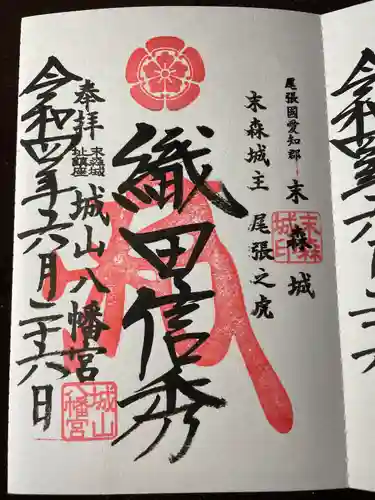 尾張國愛知郡 末森城
末森城印
末森城主 尾張之虎
織田信秀
奉拝 末森城址鎮座 城山八幡宮
城山八幡宮
令和四年六月二十六日